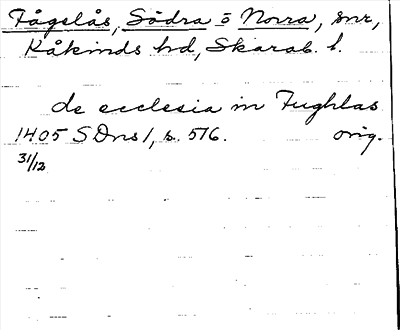 Fågelås, Södra o Norra, snr,
Kåkinds hd, Skarab. l.
de ecclesia in Fughlas
1405 SDns 1, s. 516. orig.
31/12